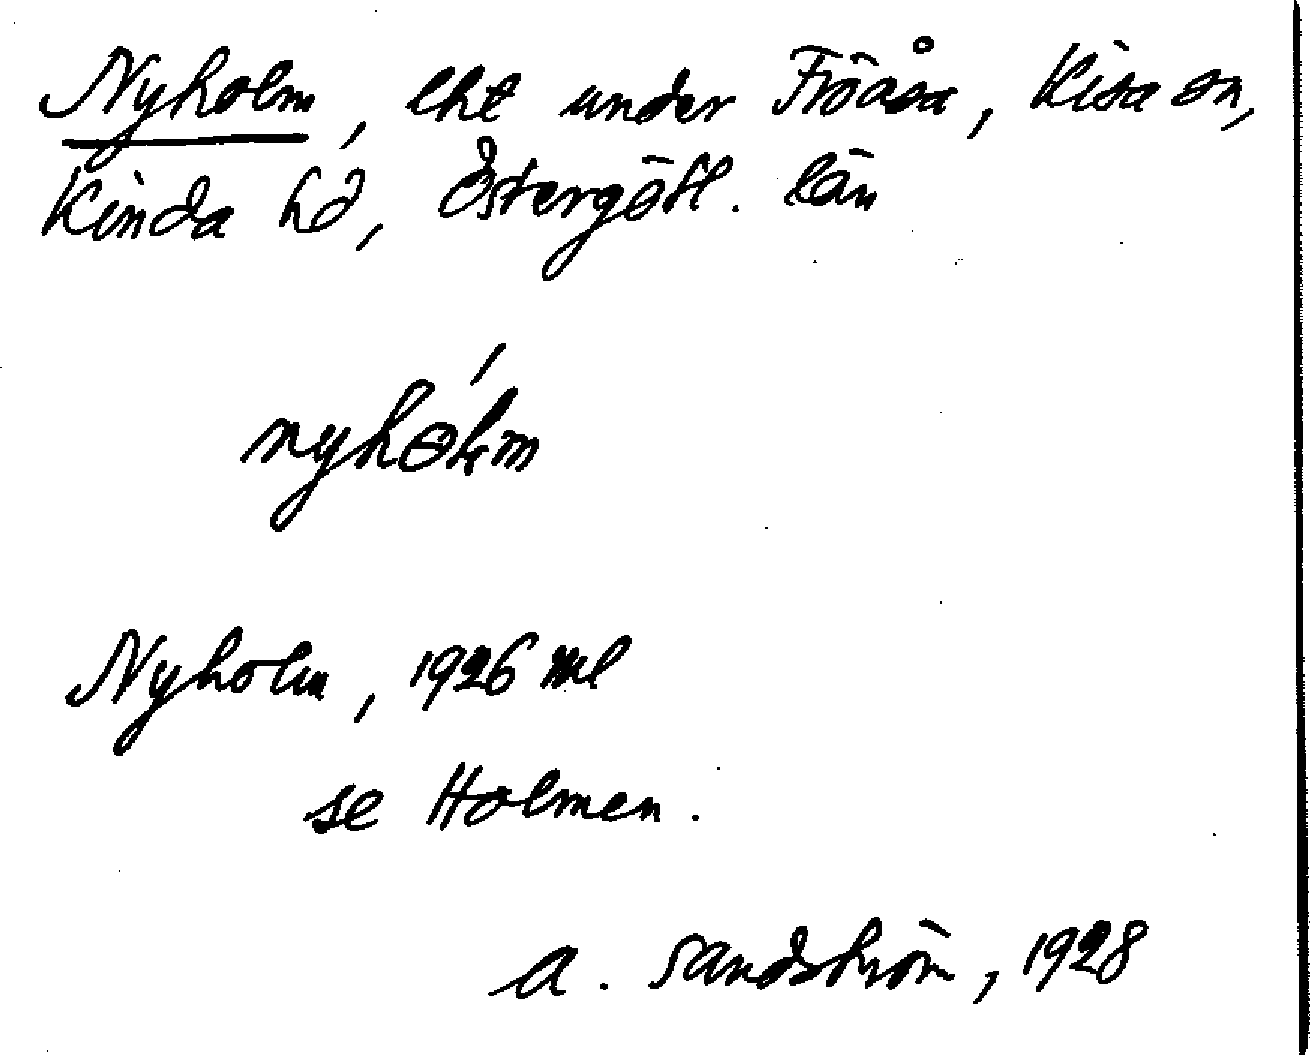 Nyholm, lht under Fröåsa, Kisa sn,
Kinda hd, Östergötl. län
nyhólm
Nyholm, 1926 ml
se Holmen.
A. Sandström, 1928